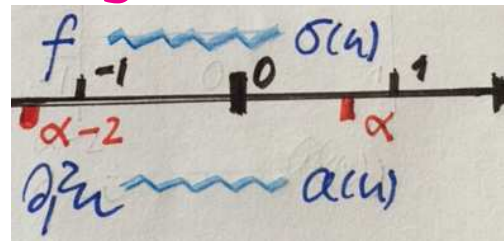 f σ(u)
-1 0 1
α-2 α
∂₁²u a(u)